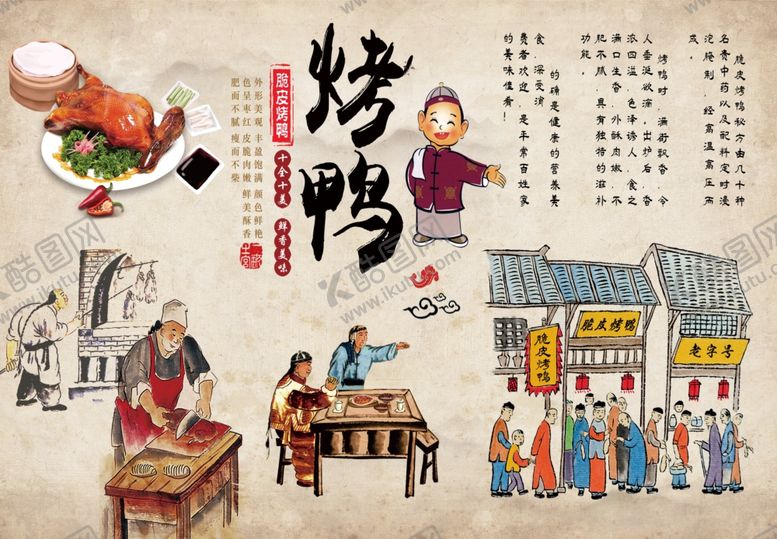 脆皮烤鸭秘方由几十种
名贵中药以及配料定时浸
泡腌制，经高温高压而
成。
烤鸭时，满街飘香，令
人垂涎欲滴，出炉后，香
浓四溢，色泽诱人，食之
满口生香，外酥肉嫩，不
肥不腻，具有独特的滋补
功能。
的确是健康的营养美
食，深受消
费者欢迎，是平常百姓家
的美味佳肴！
烤鸭
脆皮烤鸭
十全十美 鲜香美味
外形美观 丰盈饱满 颜色鲜艳
色呈枣红 皮脆肉嫩 鲜美酥香
肥而不腻 瘦而不柴
脆皮烤鸭
脆皮烤鸭
老字号
酷图网
www.ikutu.com